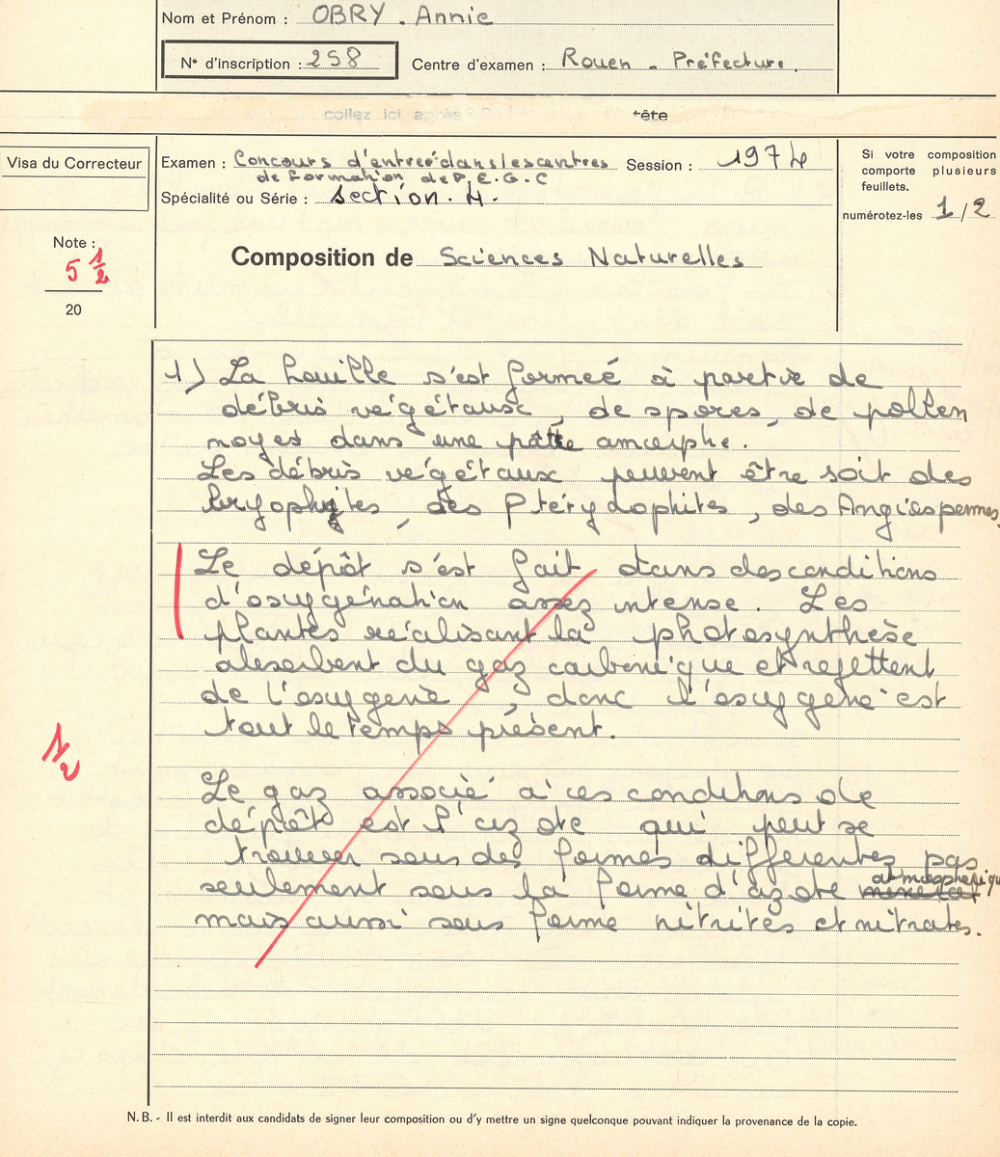 Nom et Prénom : OBRY . Annie
N° d'inscription : 258
Centre d'examen : Rouen - Préfecture.
collez ici après tête
Visa du Correcteur
Examen : Concours d'entreé dans les centres
de formation de P.E.G.C
Session : 1974
Spécialité ou Série : section. 4.
Si votre composition
comporte plusieurs
feuillets.
numérotez-les 1/2
Note :
5 1/2
20
Composition de Sciences Naturelles
1) La houille s'est formeé à partir de
débris végétaux, de spores, de pollen
noyés dans une pâte amorphe.
Les débris végétaux peuvent être soit des
bryophytes, des Ptérydophites, des Angiospermes,
Le dépôt s'est fait dans des conditions
d'oxygénation assez intense. Les
plantes réalisant la photosynthèse
absorbent du gaz carbonique et rejettent
de l'oxygène, donc l'oxygène est
tout le temps présent.
1/2
Le gaz associé à ces conditions de
dépôt est l'azote qui peut se
trouver sous des formes différentes pas
atmosphérique
seulement sous la forme d'azote
mais aussi sous forme nitrites et nitrates.
N. B. - Il est interdit aux candidats de signer leur composition ou d'y mettre un signe quelconque pouvant indiquer la provenance de la copie.